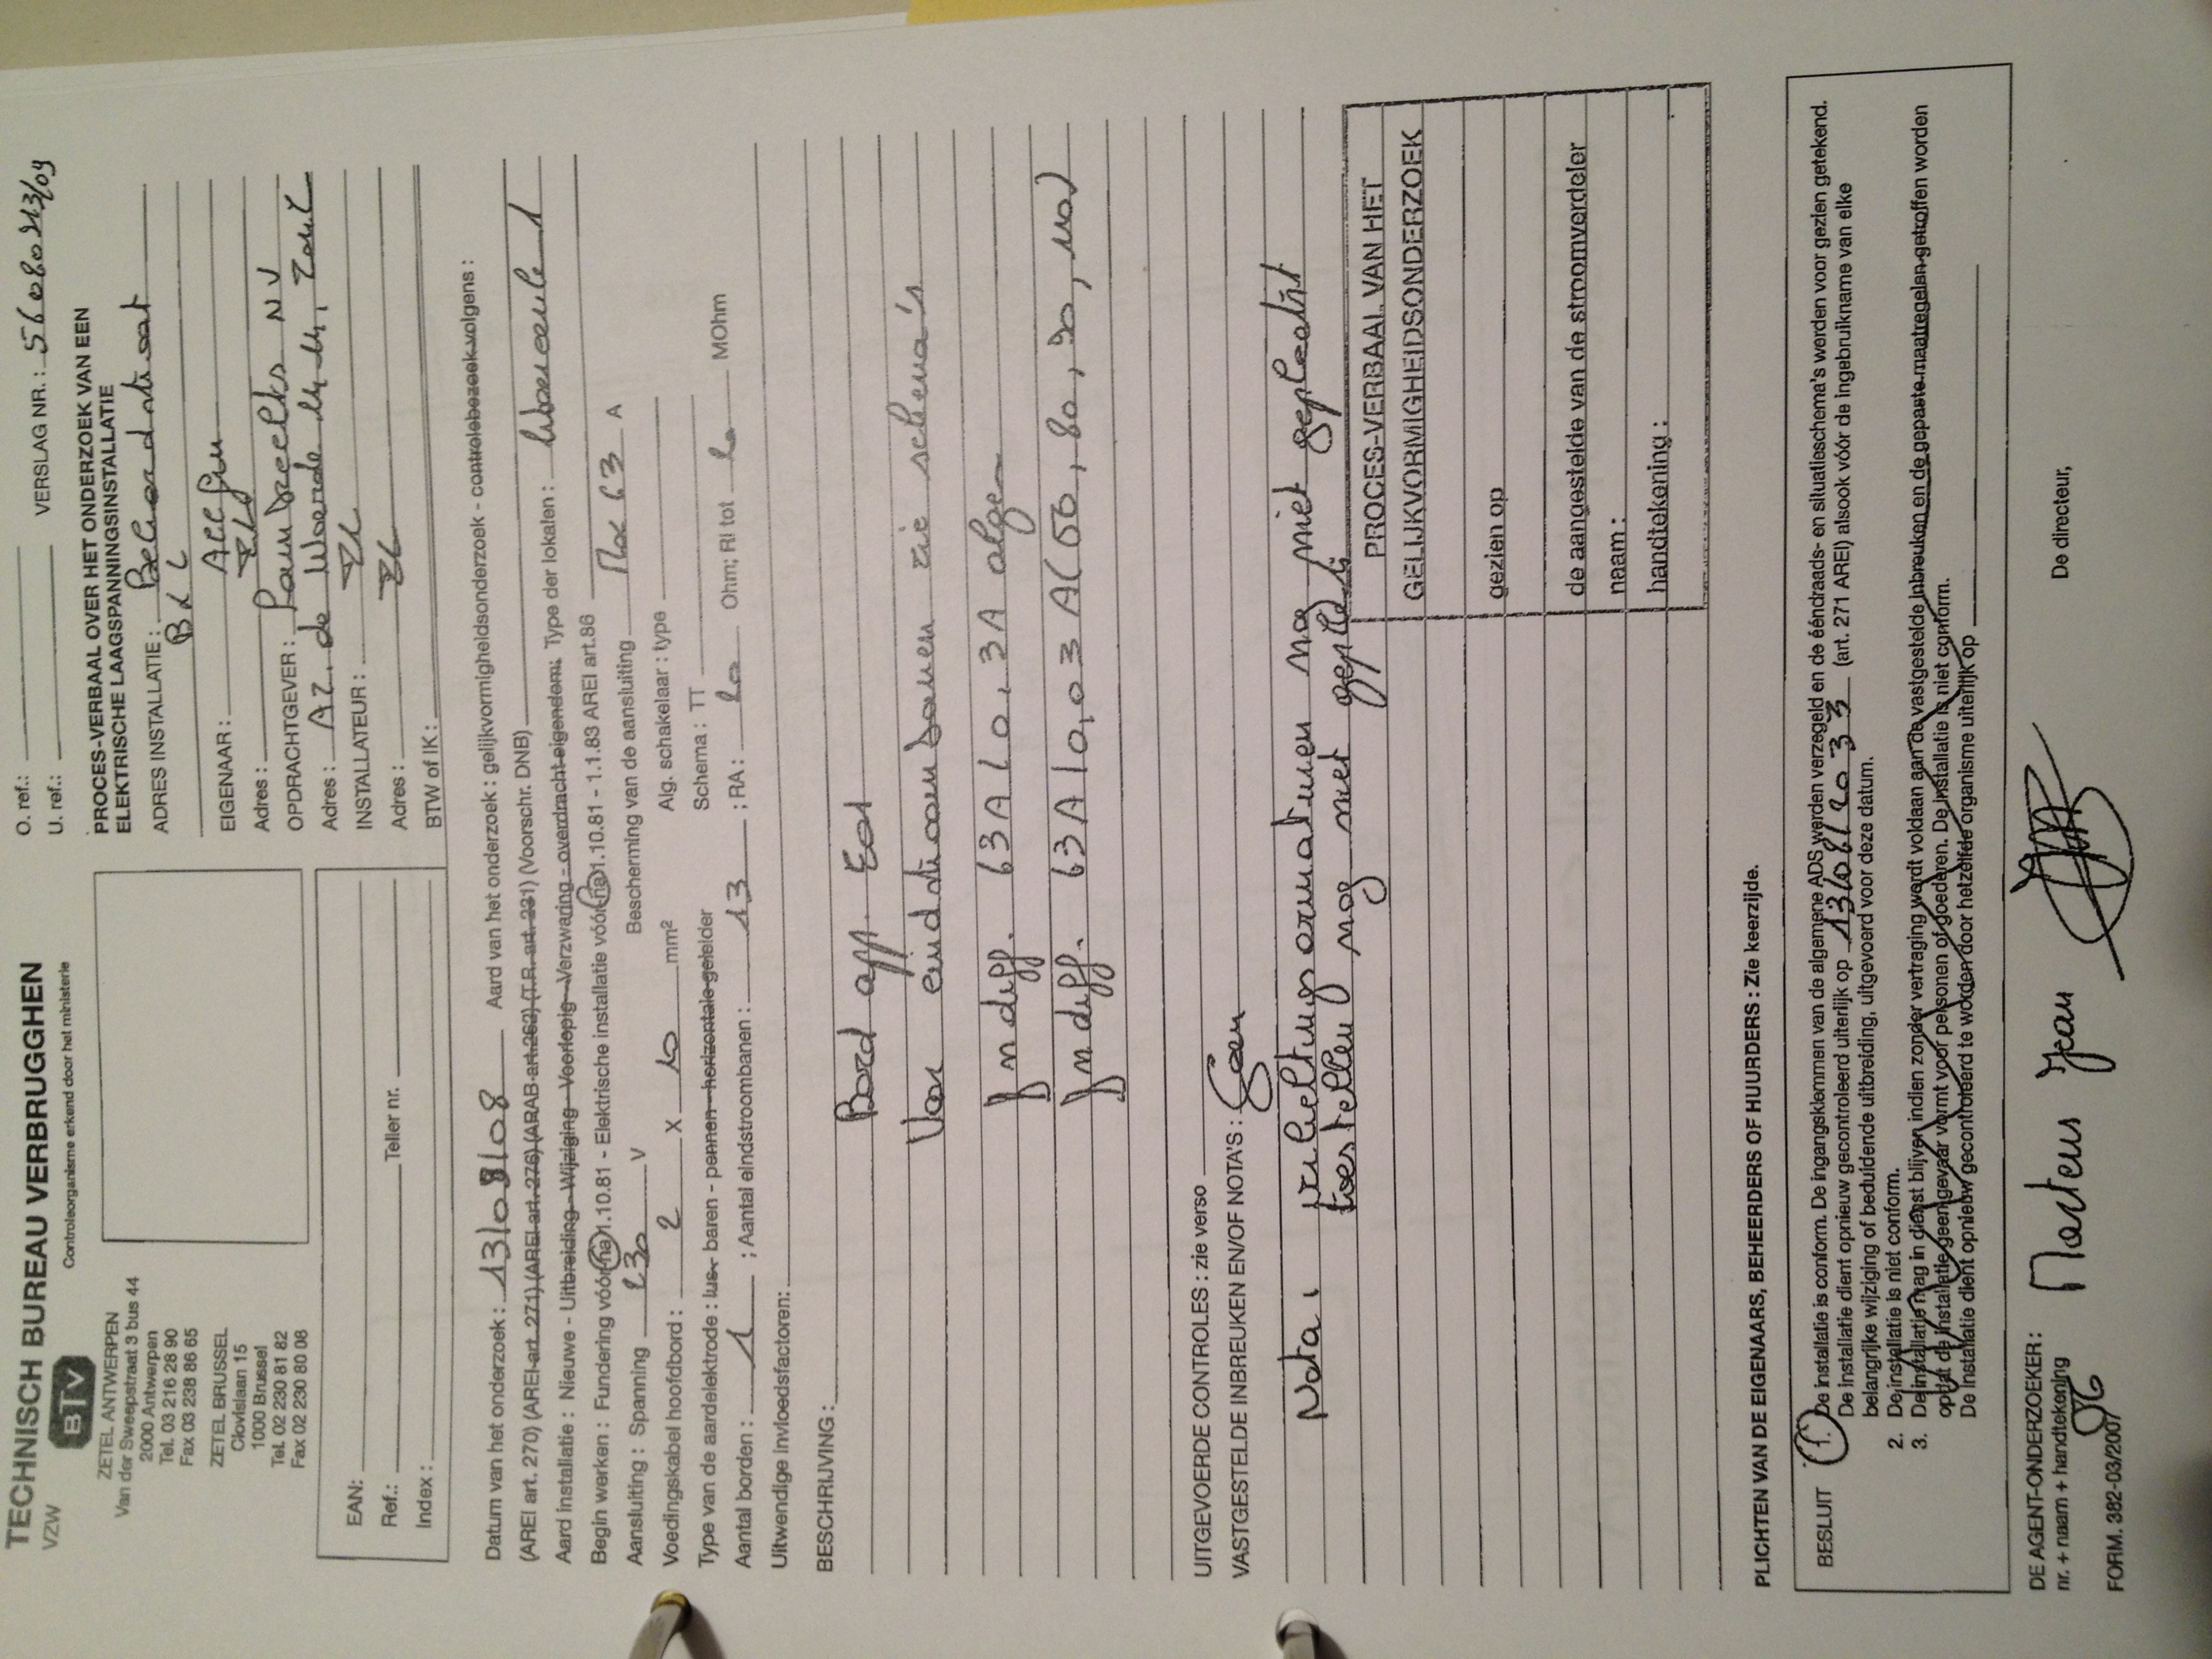 TECHNISCH BUREAU VERBRUGGHEN
VZW
BTV
Controleorganisme erkend door het ministerie
ZETEL ANTWERPEN
Van der Sweepstraat 3 bus 44
2000 Antwerpen
Tel. 03 216 28 90
Fax 03 238 86 65
ZETEL BRUSSEL
Clovislaan 15
1000 Brussel
Tel. 02 230 81 82
Fax 02 230 80 08
O. ref.: VERSLAG NR. :
U. ref.:
PROCES-VERBAAL OVER HET ONDERZOEK VAN EEN
ELEKTRISCHE LAAGSPANNINGSINSTALLATIE
ADRES INSTALLATIE :
EIGENAAR :
Adres :
OPDRACHTGEVER : NV
Adres :
INSTALLATEUR :
Adres :
BTW of IK :
EAN:
Ref.: Teller nr.
Index :
Datum van het onderzoek : 13/08/08 Aard van het onderzoek : gelijkvormigheidsonderzoek - controlebezoek volgens :
(AREI art. 270) (AREI art. 271) (AREI art. 276) (ARAB art.262) (T.R. art. 231) (Voorschr. DNB)
Aard installatie : Nieuwe - Uitbreiding - Wijziging - Voorlopig - Verzwaring - overdracht eigendom; Type der lokalen :
Begin werken : Fundering vóór/na 1.10.81 - Elektrische installatie vóór/na 1.10.81 - 1.1.83 AREI art.86
Aansluiting : Spanning 230 V Bescherming van de aansluiting Max 63 A
Voedingskabel hoofdbord : 2 X 10 mm² Alg. schakelaar : type
Type van de aardelektrode : lus - baren - pennen - horizontale geleider Schema : TT
Aantal borden : 1 ; Aantal eindstroombanen : 13 ; RA : Ohm; RI tot MOhm
Uitwendige invloedsfactoren:
BESCHRIJVING :
Bord app.
Voor eindstroombanen zie schema's
In diff. 63A / 0,3A algem
In diff. 63A / 0,03A
UITGEVOERDE CONTROLES : zie verso
VASTGESTELDE INBREUKEN EN/OF NOTA'S : Geen
Nota : verlichtingsarmaturen nog niet geplaatst
toestellen nog niet gepl.
PROCES-VERBAAL VAN HET
GELIJKVORMIGHEIDSONDERZOEK
gezien op
de aangestelde van de stroomverdeler
naam :
handtekening :
PLICHTEN VAN DE EIGENAARS, BEHEERDERS OF HUURDERS : Zie keerzijde.
BESLUIT 1. De installatie is conform. De ingangsklemmen van de algemene ADS werden verzegeld en de ééndraads- en situatieschema's werden voor gezien getekend.
De installatie dient opnieuw gecontroleerd uiterlijk op 13/08/2033 (art. 271 AREI) alsook vóór de ingebruikname van elke
belangrijke wijziging of beduidende uitbreiding, uitgevoerd voor deze datum.
2. De installatie is niet conform.
3. De installatie mag in dienst blijven indien zonder vertraging wordt voldaan aan de vastgestelde inbreuken en de gepaste maatregelen getroffen worden
opdat de installatie geen gevaar vormt voor personen of goederen. De installatie is niet conform.
De installatie dient opnieuw gecontroleerd te worden door hetzelfde organisme uiterlijk op
DE AGENT-ONDERZOEKER :
nr. + naam + handtekening
Jean
De directeur,
FORM. 382-03/2007